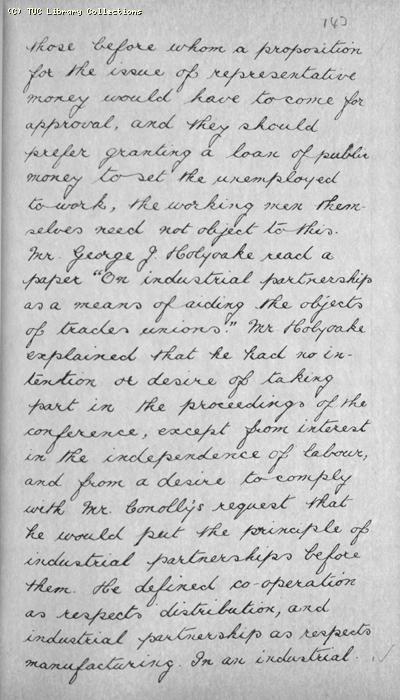 (C) TUC Library Collections
143
those before whom a proposition
for the issue of representative
money would have to come for
approval, and they should
prefer granting a loan of public
money to set the unemployed
to work, the working men them-
selves need not object to this.
Mr. George J Holyoake read a
paper "On industrial partnerships
as a means of aiding the objects
of trades unions." Mr Holyoake
explained that he had no in-
tention or desire of taking
part in the proceedings of the
conference, except from interest
in the independence of labour,
and from a desire to comply
with Mr. Conolly's request that
he would put the principle of
industrial partnerships before
them. He defined co-operation
as respects distribution, and
industrial partnership as respects
manufacturing. In an industrial